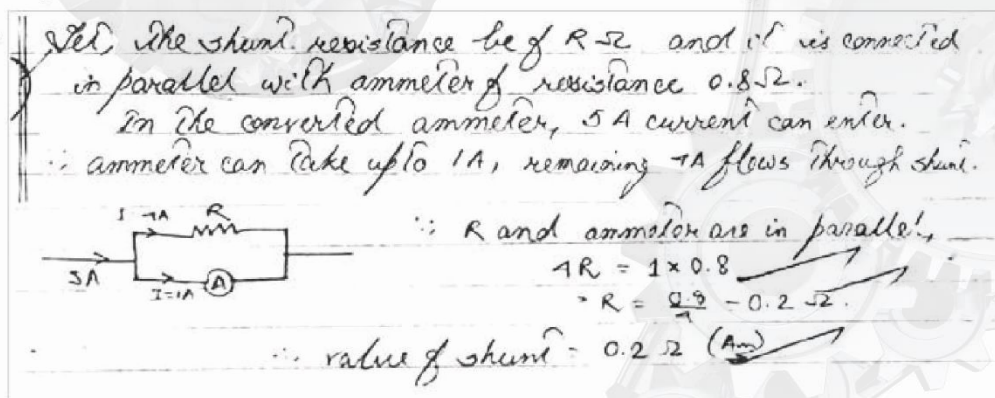 Let, the shunt resistance be of R Ω and it is connected
in parallel with ammeter of resistance 0.8 Ω.
In the converted ammeter, 5 A current can enter.
∴ ammeter can take upto 1A, remaining 4A flows through shunt.
I 4A R
5A
I=1A A
∵ R and ammeter are in parallel,
4R = 1 × 0.8
R = 0.8/4 = 0.2 Ω.
∴ value of shunt = 0.2 Ω (Ans)